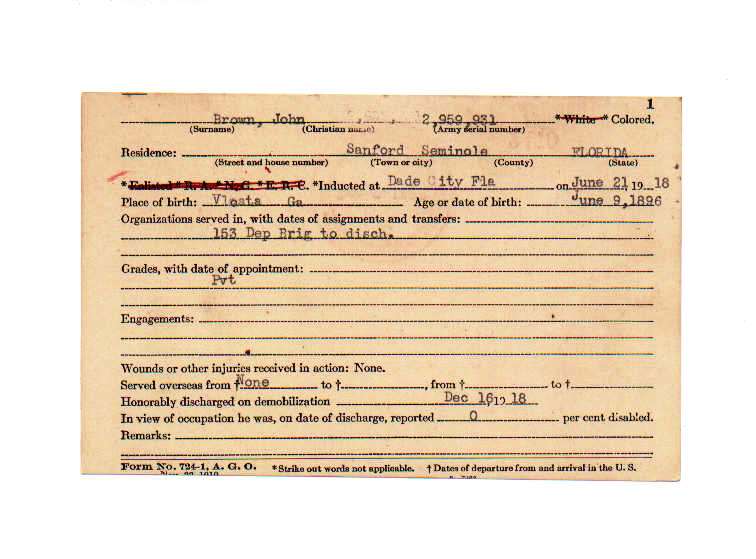 1
Brown, John 2,959,931 * White * Colored.
(Surname) (Christian name) (Army serial number)
Residence: Sanford Seminole FLORIDA
(Street and house number) (Town or city) (County) (State)
* Enlisted * R. A. * N. G. * E. R. C. * Inducted at Dade City Fla on June 21, 19 18
Place of birth: Vloata Ga Age or date of birth: June 9,1896
Organizations served in, with dates of assignments and transfers:
153 Dep Brig to disch.
Grades, with date of appointment:
Pvt
Engagements:
Wounds or other injuries received in action: None.
Served overseas from † None to †, from † to †
Honorably discharged on demobilization Dec 16, 19 18
In view of occupation he was, on date of discharge, reported 0 per cent disabled.
Remarks:
Form No. 724-1, A. G. O. * Strike out words not applicable. † Dates of departure from and arrival in the U. S.